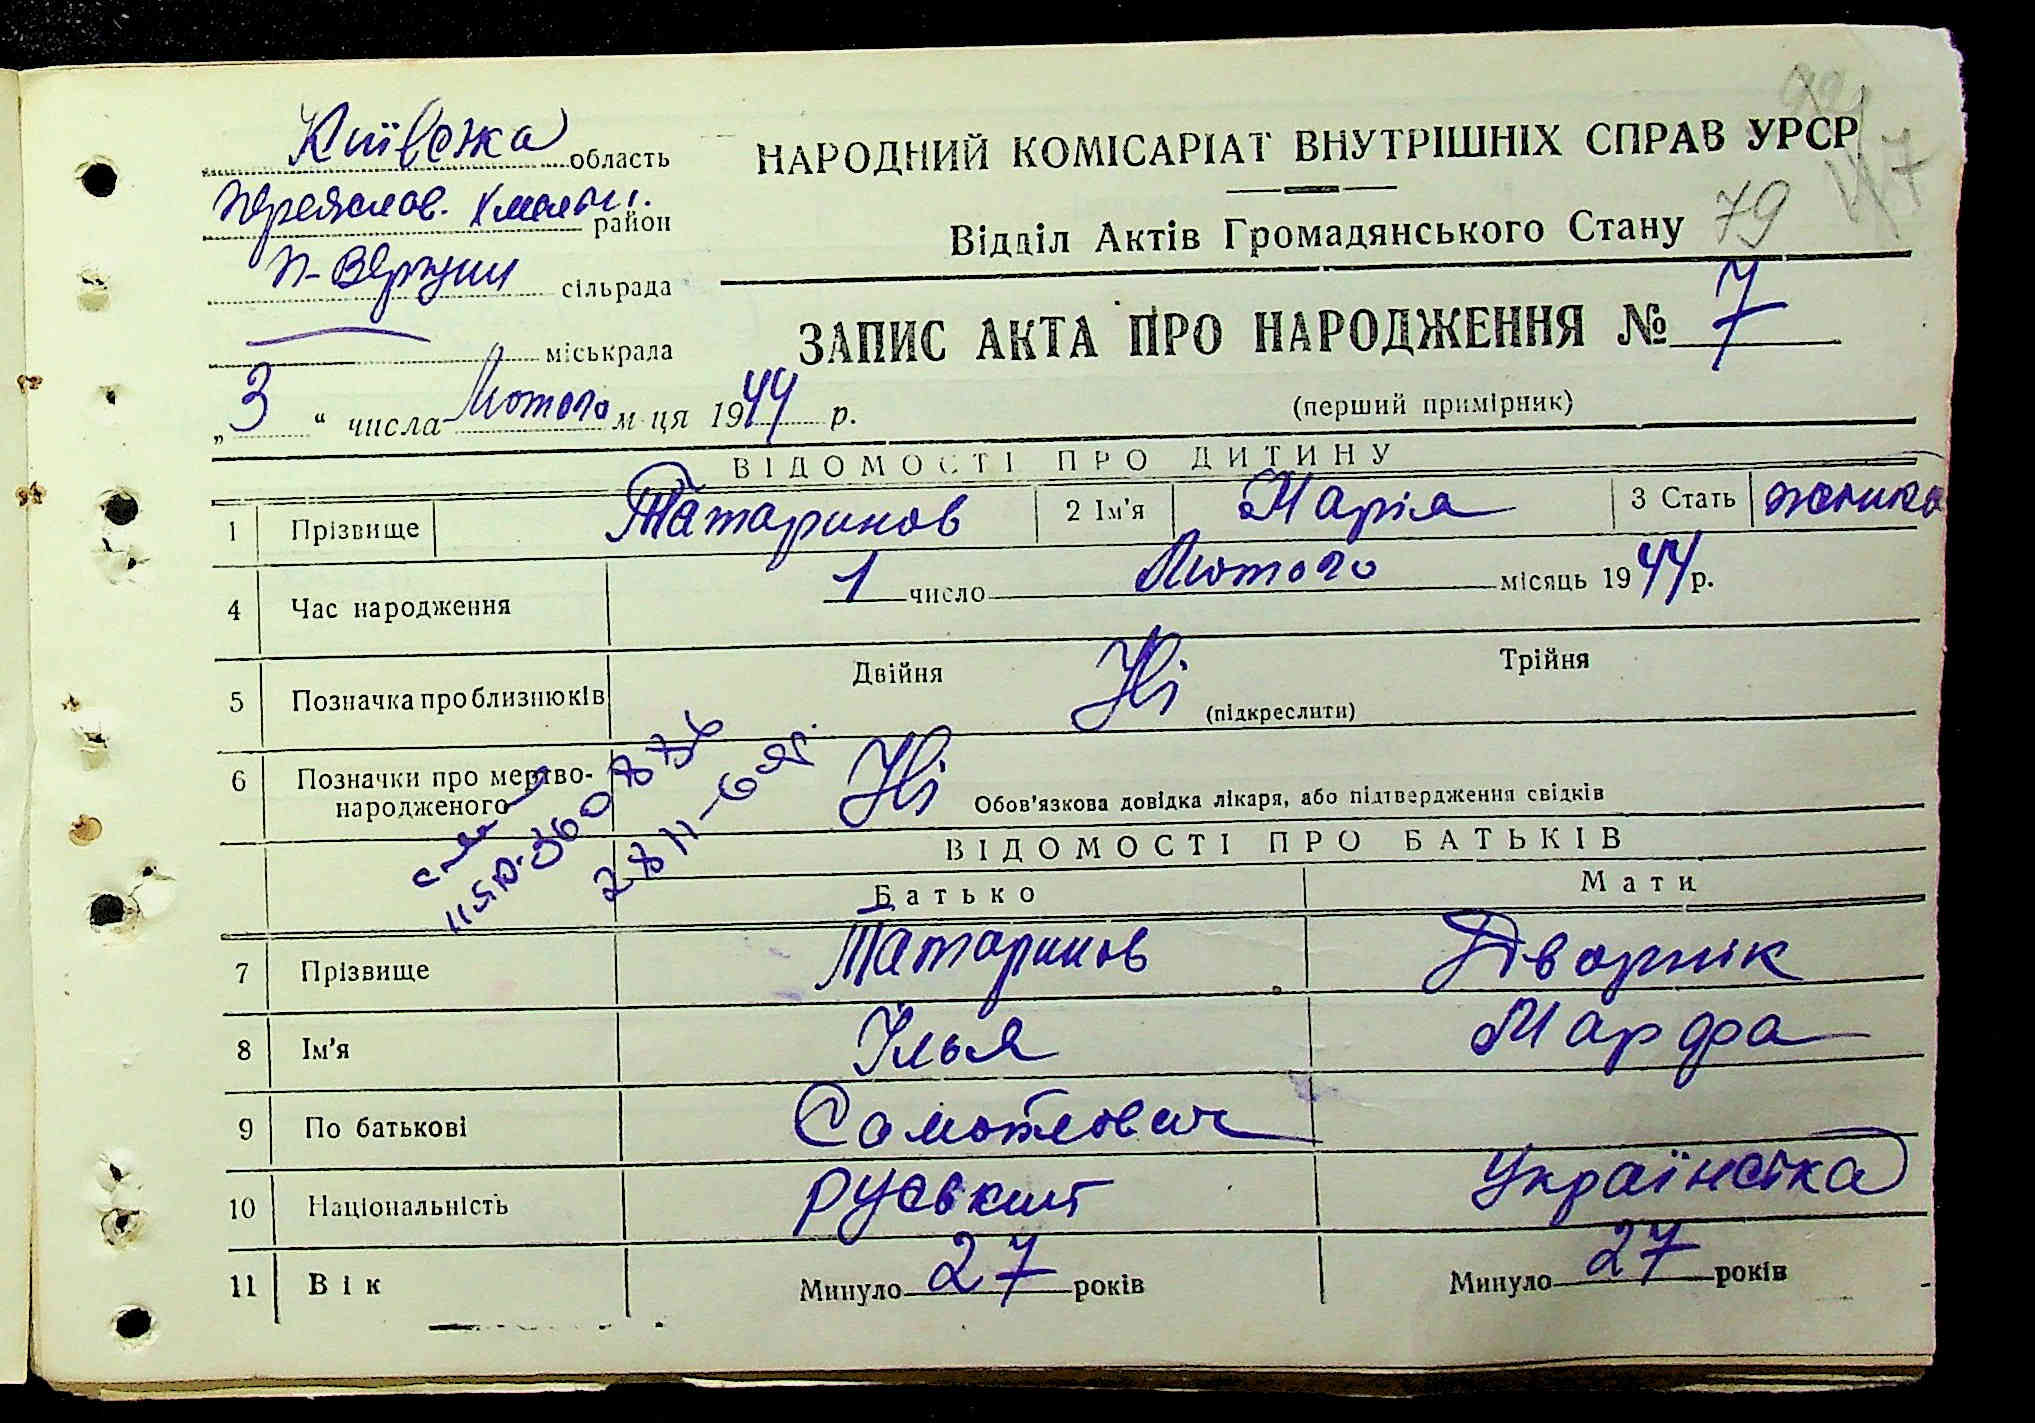 Київська область
Переяслов. Хмельн. район
П-Вергуни сільрада
міськрала
НАРОДНИЙ КОМІСАРІАТ ВНУТРІШНІХ СПРАВ УРСР
Відділ Актів Громадянського Стану 79
ЗАПИС АКТА ПРО НАРОДЖЕННЯ № 7
„3“ числа Лютого м-ця 1944 р.
(перший примірник)
ВІДОМОСТІ ПРО ДИТИНУ
1 Прізвище Татаринов 2 Ім'я Марія 3 Стать
4 Час народження 1 число Лютого місяць 1944 р.
5 Позначка про близнюків Двійня Ні Трійня
(підкреслити)
6 Позначки про мертво-
народженого Ні Обов'язкова довідка лікаря, або підтвердження свідків
ВІДОМОСТІ ПРО БАТЬКІВ
Батько Мати
7 Прізвище Татаринов Дворнік
8 Ім'я Ілья Марфа
9 По батькові
10 Національність руський Українська
11 Вік Минуло 27 років Минуло 27 років